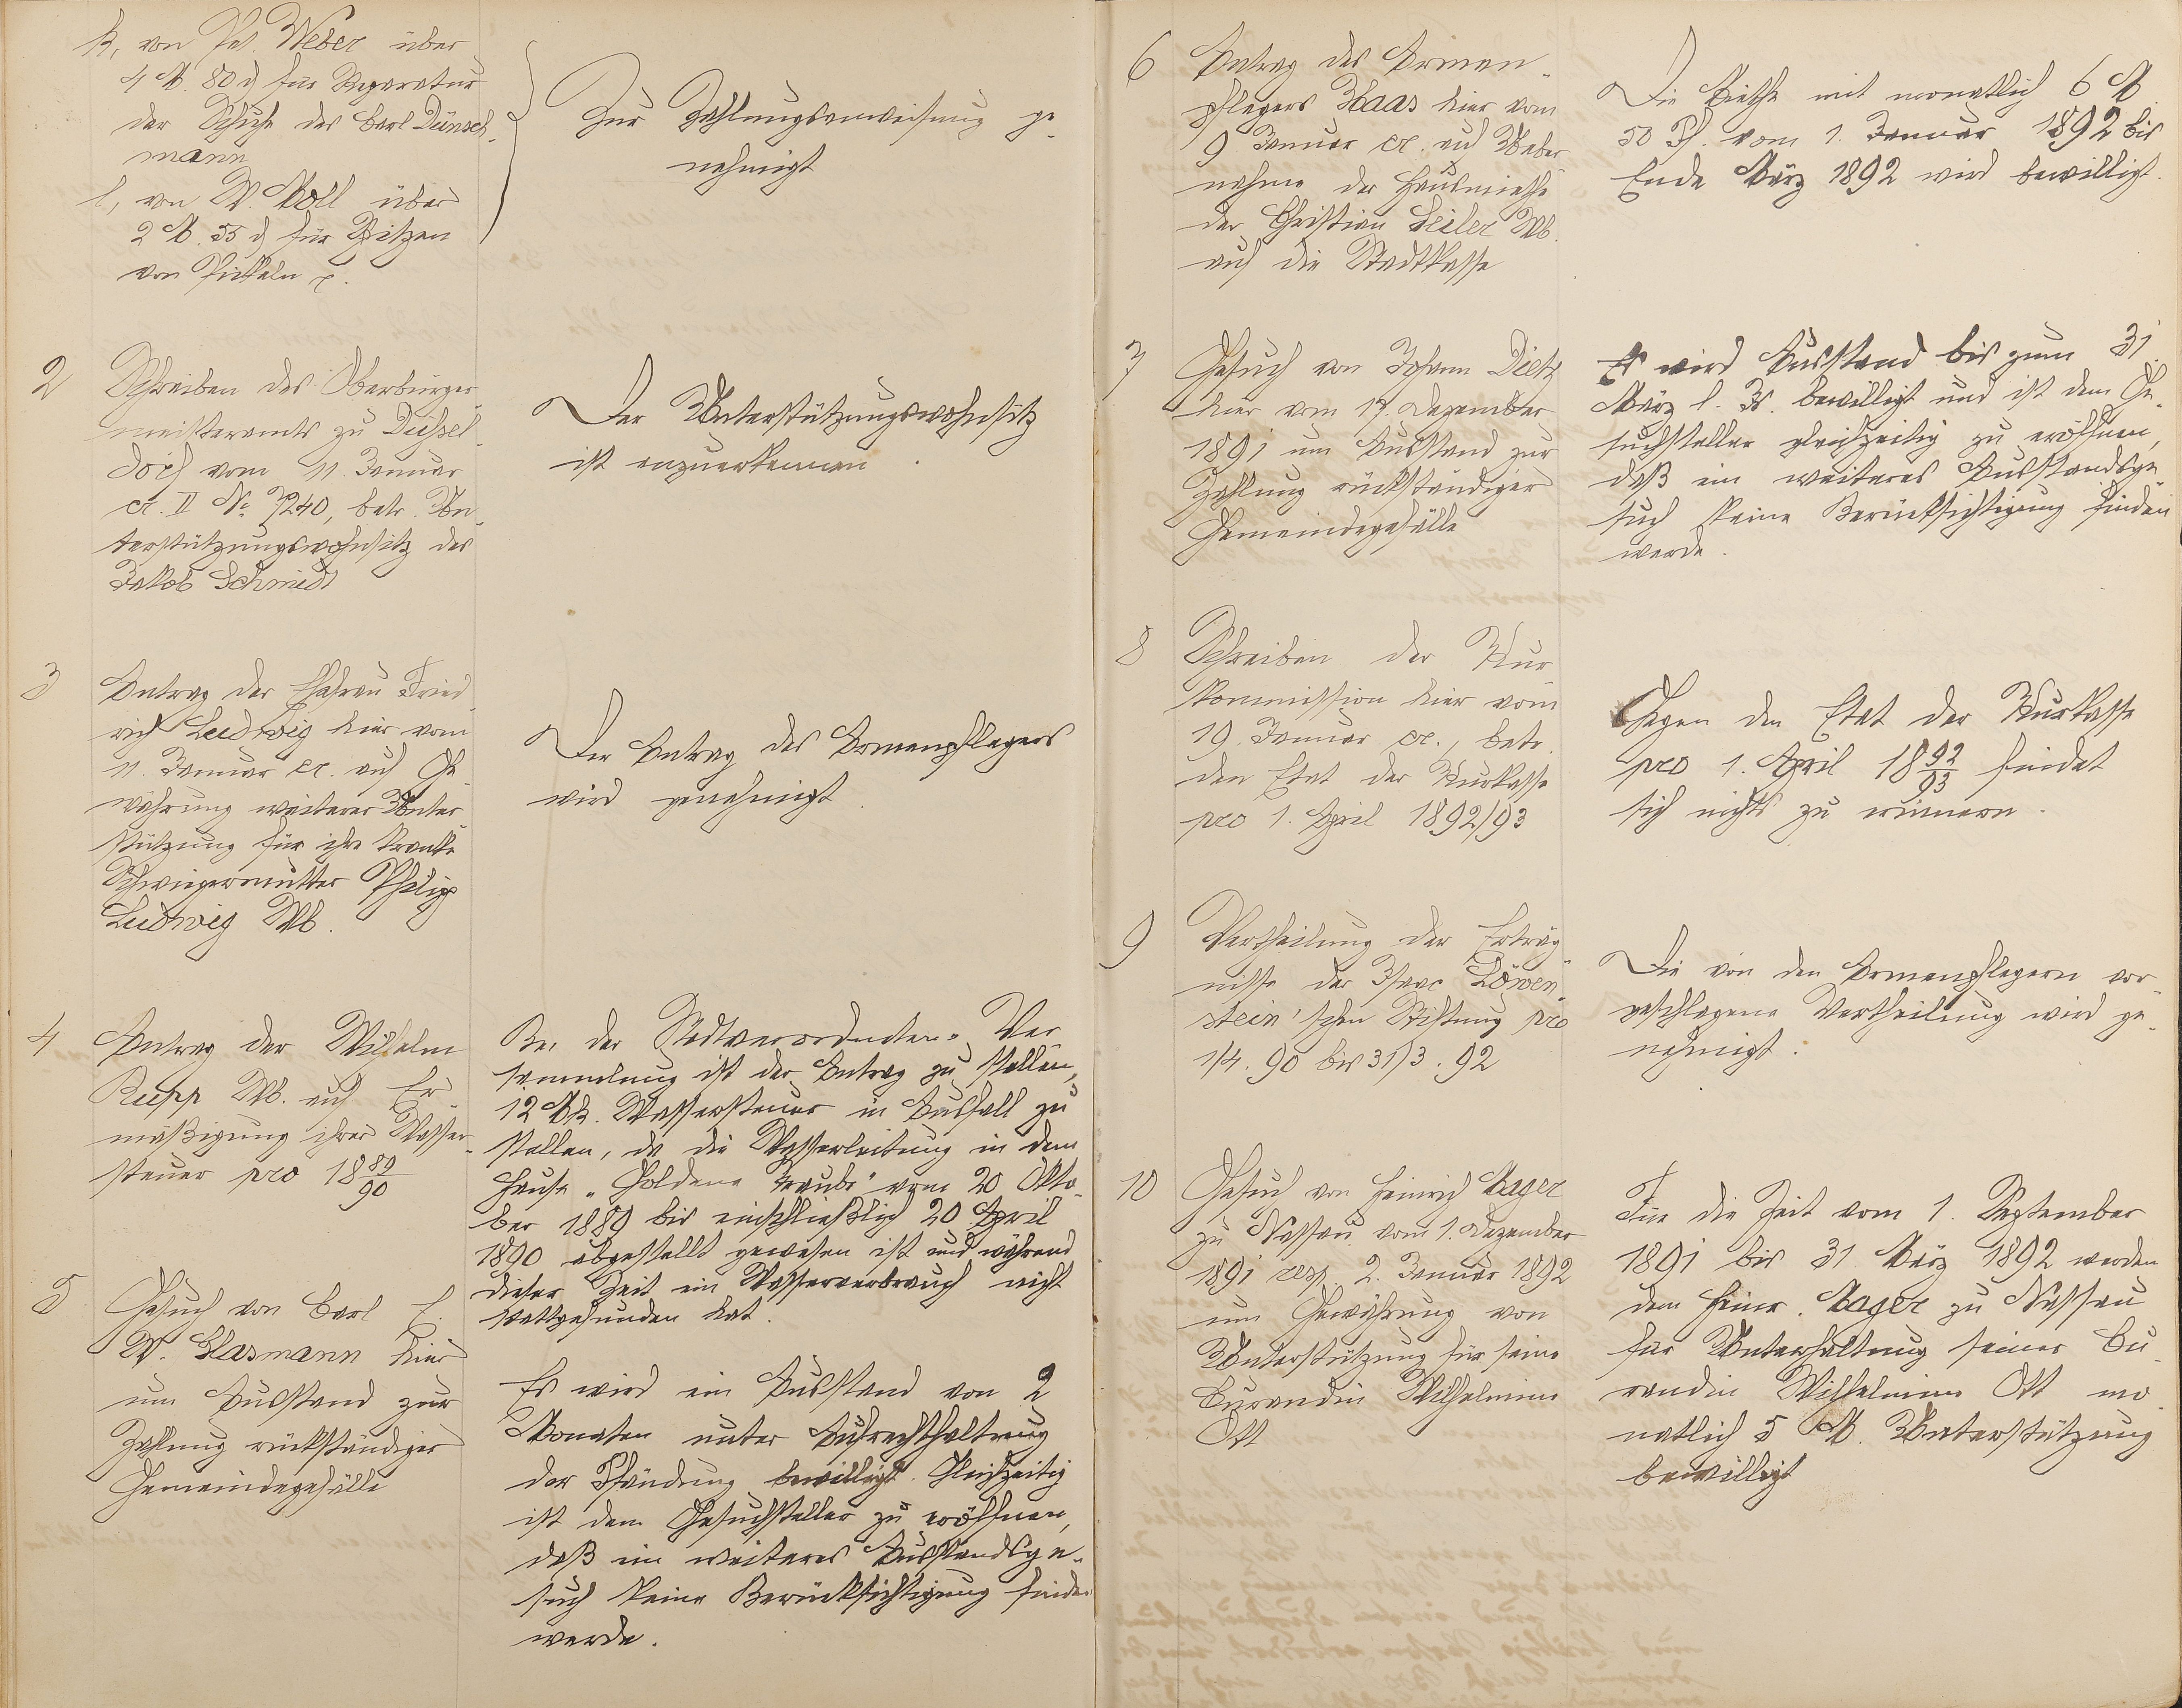 k, von Ph. Weber über
4 M. 80 d für Reparatur
der Schuhe des Carl Dünsch-
mann
l, von W. Moll über
2 M. 55 d für Spitzen
von Pickeln p.
Zur Zahlungsanweisung ge-
nehmigt
2
Schreiben des Oberbürger-
meisteramts zu Düssel-
dorf vom 11. Januar
cr. II No 7240, betr. Un-
terstützungswohnsitz des
Jakob Schmidt
Der Unterstützungswohnsitz
ist anzuerkennen.
3
Antrag der Ehefrau Fried-
rich Ludwig hier vom
11. Januar cr. auf Ge-
währung weiterer Unter-
stützung für ihre kranke
Schwiegermutter Philipp
Ludwig Wb.
Der Antrag des Armenpflegers
wird genehmigt.
4
Antrag der Wilhelm
Rupp Wb. auf Er-
mäßigung ihrer Wasser-
steuer pro 18 89/90
Bei der Stadtverordneten-Ver-
sammlung ist der Antrag zu stellen,
12 Mk. Wassersteuer in Ausfall zu
stellen, da die Wasserleitung in dem
Hause „Goldene Traube" vom 20 Okto-
ber 1889 bis einschließlich 20 April
1890 abgestellt gewesen ist und während
dieser Zeit ein Wasserverbrauch nicht
stattgefunden hat.
5
Gesuch von Carl E.
W. Glasmann hier
um Ausstand zur
Zahlung rückständiger
Gemeindegefälle
Es wird ein Ausstand von 2
Monaten unter Aufrechthaltung
der Pfändung bewilligt. Gleichzeitig
ist dem Gesuchsteller zu eröffnen,
daß ein weiteres Ausstandsge-
such keine Berücksichtigung finden
werde.
6
Antrag des Armen-
pflegers Haas hier vom
9 Januar cr. auf Ueber-
nahme der Hausmiethe
der Christian Seiler Wb.
auf die Stadtkasse
Die Miethe mit monatlich 6 M
50 Pf. vom 1. Januar 1892 bis
Ende März 1892 wird bewilligt.
7
Gesuch von Johann Dietz
hier vom 17. Dezember
1891 um Ausstand zur
Zahlung rückständiger
Gemeindegefälle
Es wird Ausstand bis zum 31
März l. Js. bewilligt und ist dem Ge-
suchsteller gleichzeitig zu eröffnen,
daß ein weiteres Ausstandsge-
such keine Berücksichtigung finden
werde.
8
Schreiben der Kur-
kommission hier vom
19. Januar cr., betr.
den Etat der Kurkasse
pro 1. April 1892/93
Gegen den Etat der Kurkasse
pro 1. April 18 92/93 findet
sich nichts zu erinnern.
9
Vertheilung der Erträg-
nisse der Isaac Löwen-
stein'schen Stiftung pro
1/4. 90 bis 31/3. 92
Die von den Armenpflegern vor-
geschlagene Vertheilung wird ge-
nehmigt.
10
Gesuch von Heinrich Mager
zu Nassau vom 1. Dezember
1891 resp. 2. Januar 1892
um Gewährung von
Unterstützung für seine
Curandin Wilhelmine
Ott
Für die Zeit vom 1. September
1891 bis 31 März 1892 werden
dem Heinr. Mager zu Nassau
für Unterhaltung seiner Cu-
randin Wilhelmine Ott mo-
natlich 5 M. Unterstützung
bewilligt